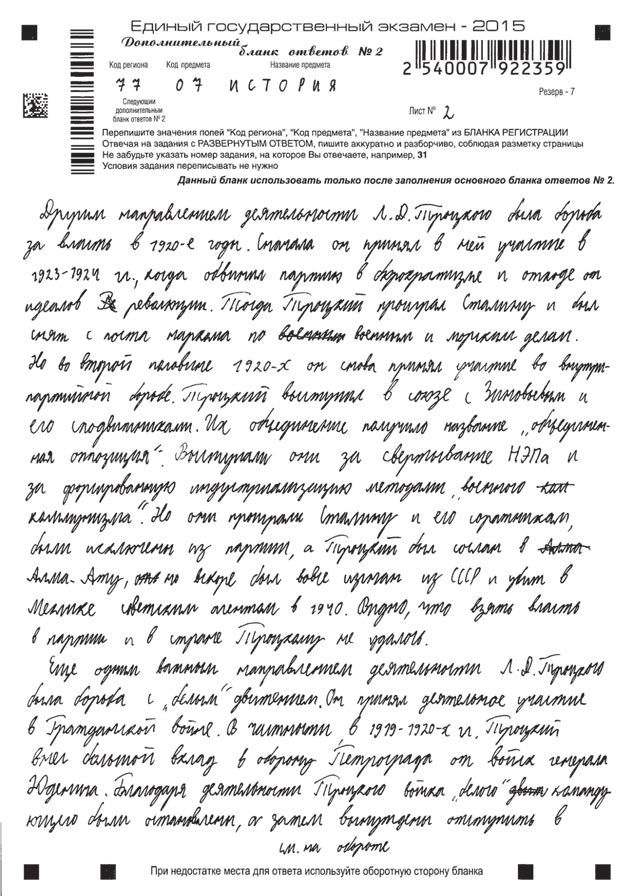 Единый государственный экзамен - 2015
Дополнительный бланк ответов № 2
Код региона Код предмета Название предмета
77 07 ИСТОРИЯ
2 540007 922359
Резерв - 7
Следующий
дополнительный
бланк ответов № 2
Лист № 2
Перепишите значения полей "Код региона", "Код предмета", "Название предмета" из БЛАНКА РЕГИСТРАЦИИ
Отвечая на задания с РАЗВЕРНУТЫМ ОТВЕТОМ, пишите аккуратно и разборчиво, соблюдая разметку страницы
Не забудьте указать номер задания, на которое Вы отвечаете, например, 31
Условия задания переписывать не нужно
Данный бланк использовать только после заполнения основного бланка ответов № 2.
Другим направлением деятельности Л.Д.Троцкого была борьба
за власть в 1920-е годы. Сначала он принял в ней участие в
1923-1924 гг., когда обвинил партию в бюрократизме и отходе от
идеалов революции. Тогда Троцкий проиграл Сталину и был
снят с поста наркома по военным и морским делам.
Но во второй половине 1920-х он снова принял участие во внутри-
партийной борьбе. Троцкий выступил в союзе с Зиновьевым и
его сподвижниками. Их объединение получило название „объединен-
ная оппозиция". Выступали они за свертывание НЭПа и
за форсированную индустриализацию методами „военного
коммунизма". Но они проиграли Сталину и его соратникам,
были исключены из партии, а Троцкий был сослан в
Алма-Ату, но вскоре был вовсе изгнан из СССР и убит в
Мексике советским агентом в 1940. Видно, что взять власть
в партии и в стране Троцкому не удалось.
Еще одним важным направлением деятельности Л.Д.Троцкого
была борьба с „белым" движением. Он принял деятельное участие
в Гражданской войне. В частности, в 1919-1920-х гг. Троцкий
внес большой вклад в оборону Петрограда от войск генерала
Юденича. Благодаря деятельности Троцкого войска „белого" команду-
ющего были остановлены, а затем вынуждены отступить в
см. на обороте
При недостатке места для ответа используйте оборотную сторону бланка